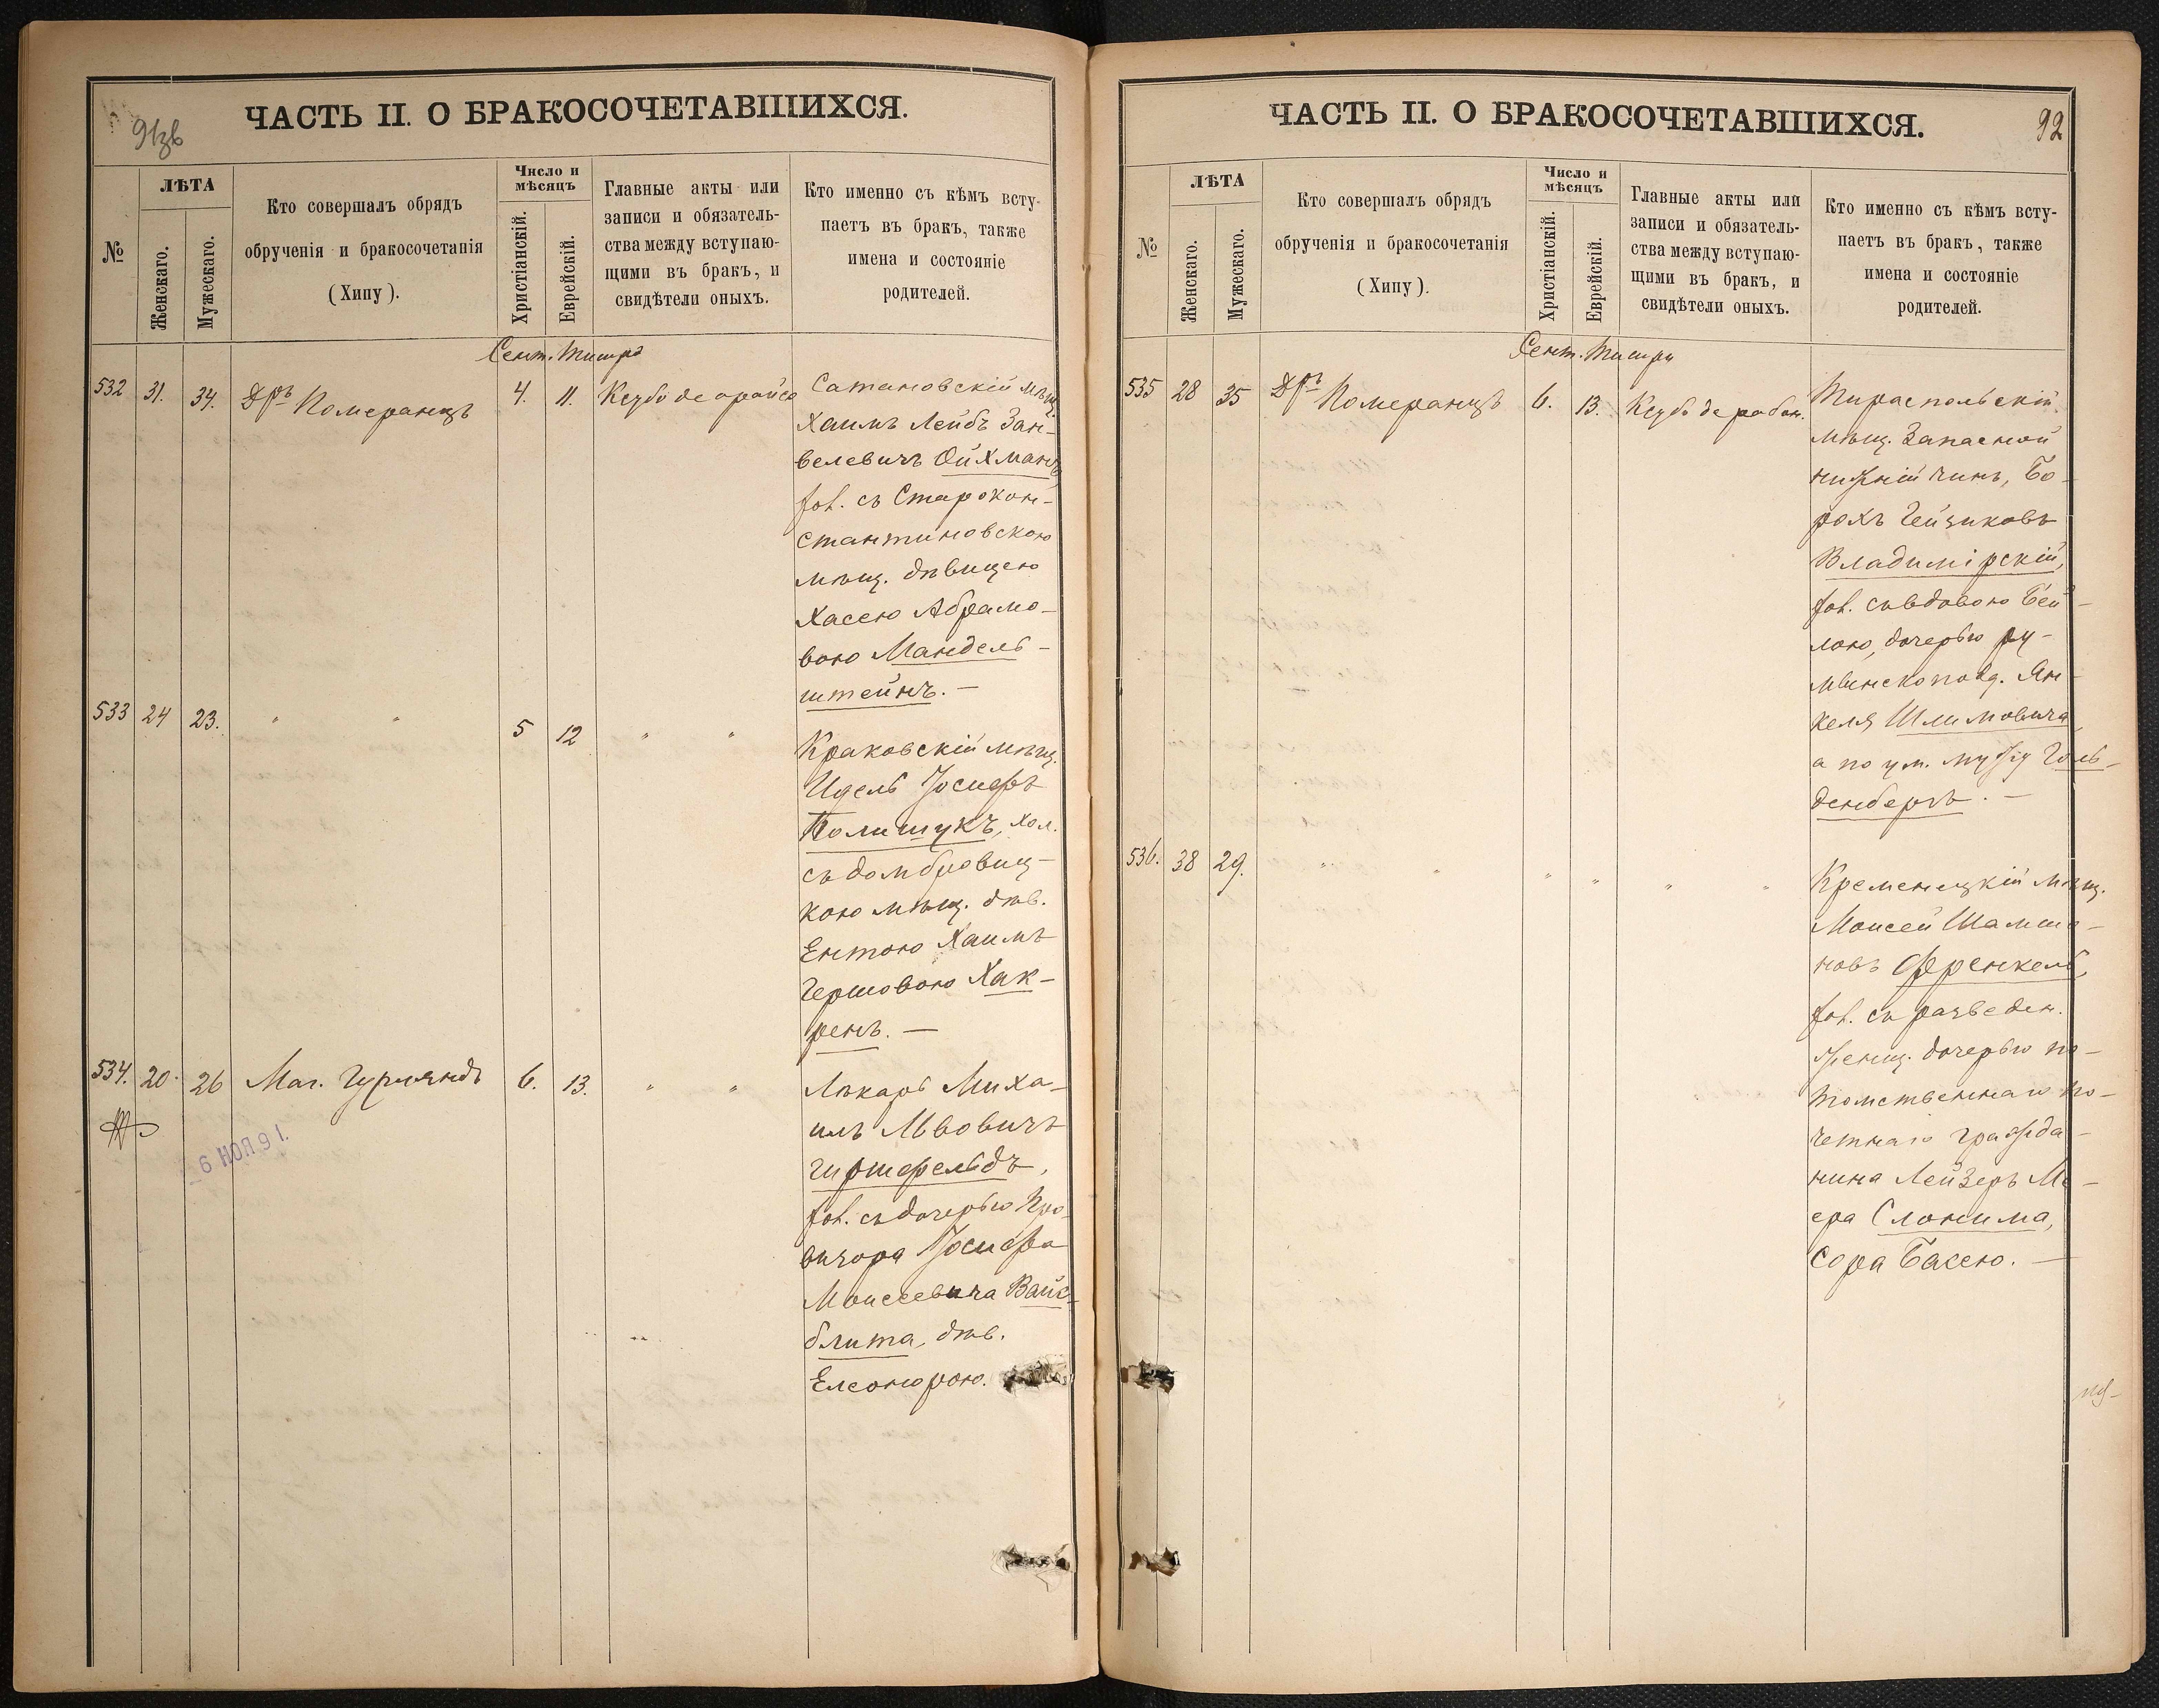 ЧАСТЬ II. О БРАКОСОЧЕТАВШИХСЯ.
№
ЛѢТА
Женскаго.
Мужескаго.
Кто совершалъ обрядъ
обрученія и бракосочетанія
(Хипу).
Число и
мѣсяцъ
Христіанскій.
Еврейскій.
Главные акты или
записи и обязатель-
ства между вступаю-
щими въ бракъ, и
свидѣтели оныхъ.
Кто именно съ кѣмъ всту-
паетъ въ бракъ, также
имена и состояніе
родителей.
Сент. Тишри
532 31. 34. Дръ Померанцъ 4. 11. Ксубо де орайсо
Сатановскій мѣщ.
Хаимъ Лейбъ Зан-
велевичъ Ойхманъ,
хол. съ Старокон-
стантиновскою
мѣщ. дѣвицею
Хасею Абрамо-
вою Мандель-
штейнъ. —
533 24 23. " " 5 12 " "
Краковскій мѣщ.
Идель Іосифъ
Полищукъ, хол.
съ домбровиц-
кою мѣщ. дѣв.
Ентою Хаимъ
Гершовою Хак-
ренъ. —
534. 20. 26 Маг. Гурляндъ 6. 13. " "
6 НОЯ 91.
Лѣкарь Миха-
илъ Львовичъ
Гиршфельдъ,
хол. съ дочерью Про-
визора Іосифа
Моисеевича Вайс-
блита, дѣв.
Елеонорою.
ЧАСТЬ II. О БРАКОСОЧЕТАВШИХСЯ.
92
№
ЛѢТА
Женскаго.
Мужескаго.
Кто совершалъ обрядъ
обрученія и бракосочетанія
(Хипу).
Число и
мѣсяцъ
Христіанскій.
Еврейскій.
Главные акты или
записи и обязатель-
ства между вступаю-
щими въ бракъ, и
свидѣтели оныхъ.
Кто именно съ кѣмъ всту-
паетъ въ бракъ, также
имена и состояніе
родителей.
Сент. Тишри
535 28 35 Дръ Померанцъ 6. 13. Ксубо де рабон.
Тираспольскій
мѣщ. Запасной
нижній чинъ, Бо-
рохъ Гейзиковъ
Владимірскій,
хол. съ вдовою Бей-
лою, дочерью ру-
мынскоподд. Ян-
келя Шлимовича,
а по ум. мужу Голь-
денбергъ. —
536. 38 29. " " " " " "
Кременецкій мѣщ.
Моисей Шамшо-
новъ Френкель,
хол. съ разведен.
женщ. дочерью по-
томственнаго по-
четнаго гражда-
нина Лейзеръ Ме-
ера Слонима,
Сора Басею. —